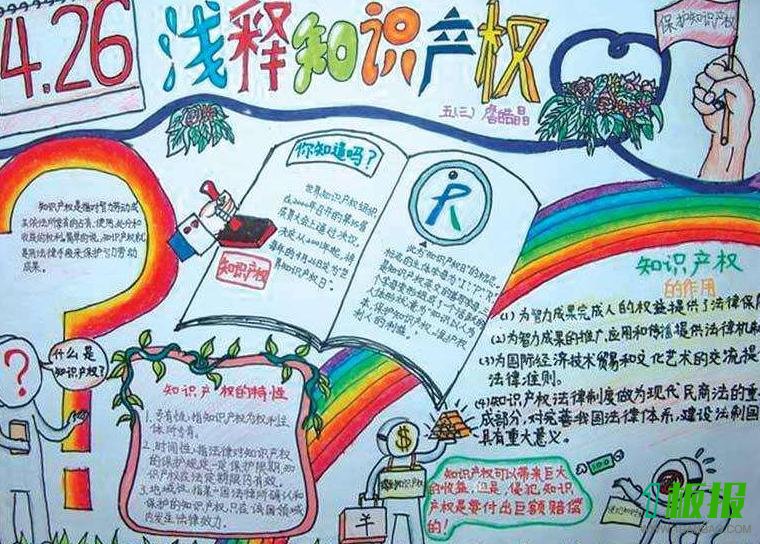 4.26
浅释知识产权
保护知识产权
五(三) 詹皓晶
知识产权是指对智力劳动成
果依法所享有的占有、使用、处分和
收益的权利。简单的说,知识产权就
是用法律手段来保护智力劳动
成果。
你知道吗?
世界知识产权组织
在2000年召开的第35届
成员大会上通过决议,
决定从2001年起,将
每年的4月26日定为“世
界知识产权日”。
知识产权
R
此为“知识产权日”的标志,
人的利益。
什么是
知识产权?
?
知识产权的特性
1.专有性:指知识产权为权利主
体所专有。
2.时间性:指法律对知识产权
的保护规定一定保护限期,知
识产权在法定期限内有效。
3.地域性:指某一国法律所确认和
保护的知识产权,只在该国领域
内发生法律效力。
知识产权
的作用
(1)为智力成果完成人的权益提供了法律保障
(2)为智力成果的推广应用和传播提供法律机制
(3)为国际经济技术贸易和文化艺术的交流提
法律准则。
(4)知识产权法律制度做为现代民商法的重
成部分,对完善我国法律体系,建设法制国
具有重大意义。
$
羊
知识产权可以带来巨大
的收益,但是,侵犯知识
产权是要付出巨额赔偿
的!
板报